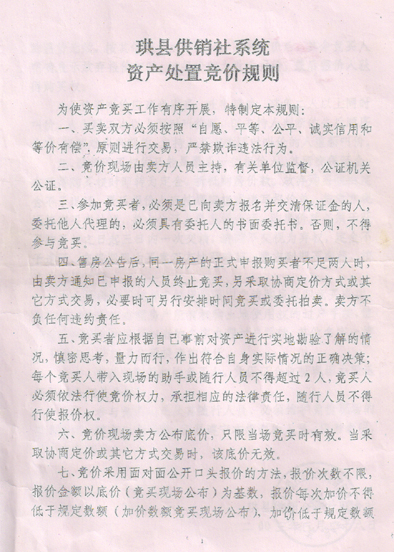 珙县供销社系统
资产处置竞价规则
为使资产竞买工作有序开展，特制定本规则：
一、买卖双方必须按照“自愿、平等、公平、诚实信用和
等价有偿”.原则进行交易，严禁欺诈违法行为。
二、竞价现场由卖方人员主持，有关单位监督，公证机关
公证。
三、参加竞买者，必须是已向卖方报名并交清保证金的人，
委托他人代理的，必须具有委托人的书面委托书。否则，不得
参与竞买。
四、售房公告后，同一房产的正式申报购买者不足两人时，
由卖方通知已申报的人员终止竞买，另采取协商定价方式或其
它方式交易，必要时可另行安排时间竞买或委托拍卖。卖方不
负任何违约责任。
五、竞买者应根据自己事前对资产进行实地勘验了解的情
况，慎密思考，量力而行，作出符合自身实际情况的正确决策；
每个竞买人带入现场的助手或随行人员不得超过2人，竞买人
必须依法行使竞价权力，承担相应的法律责任，随行人员不得
行使报价权。
六、竞价现场卖方公布底价，只限当场竞买时有效。当采
取协商定价或其它方式交易时，该底价无效。
七、竞价采用面对面公开口头报价的方法，报价次数不限，
报价金额以底价（竞买现场公布）为基数，报价每次加价不得
低于规定数额（加价数额竞买现场公布），加价低于规定数额
1